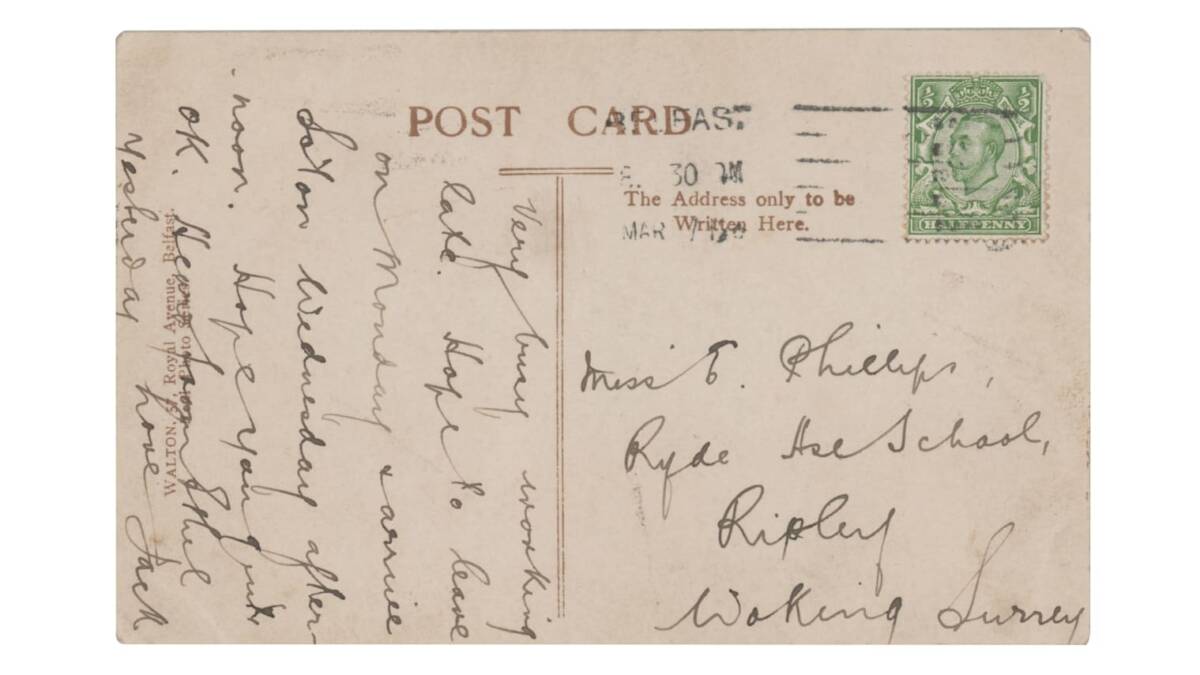 POST CARD
BELFAST
30 PM
MAR
The Address only to be
Written Here.
½ ½
HALFPENNY
Very busy working
late. Hope to leave
on Monday & arrive
So'ton Wednesday after-
noon. Hope you quite
OK. Heard from Ethel
Yesterday Love Jack
WALTON, Royal Avenue, Belfast.
Photo Series.
Miss E. Phillips,
Ryde Hse School,
Ripley
Woking Surrey